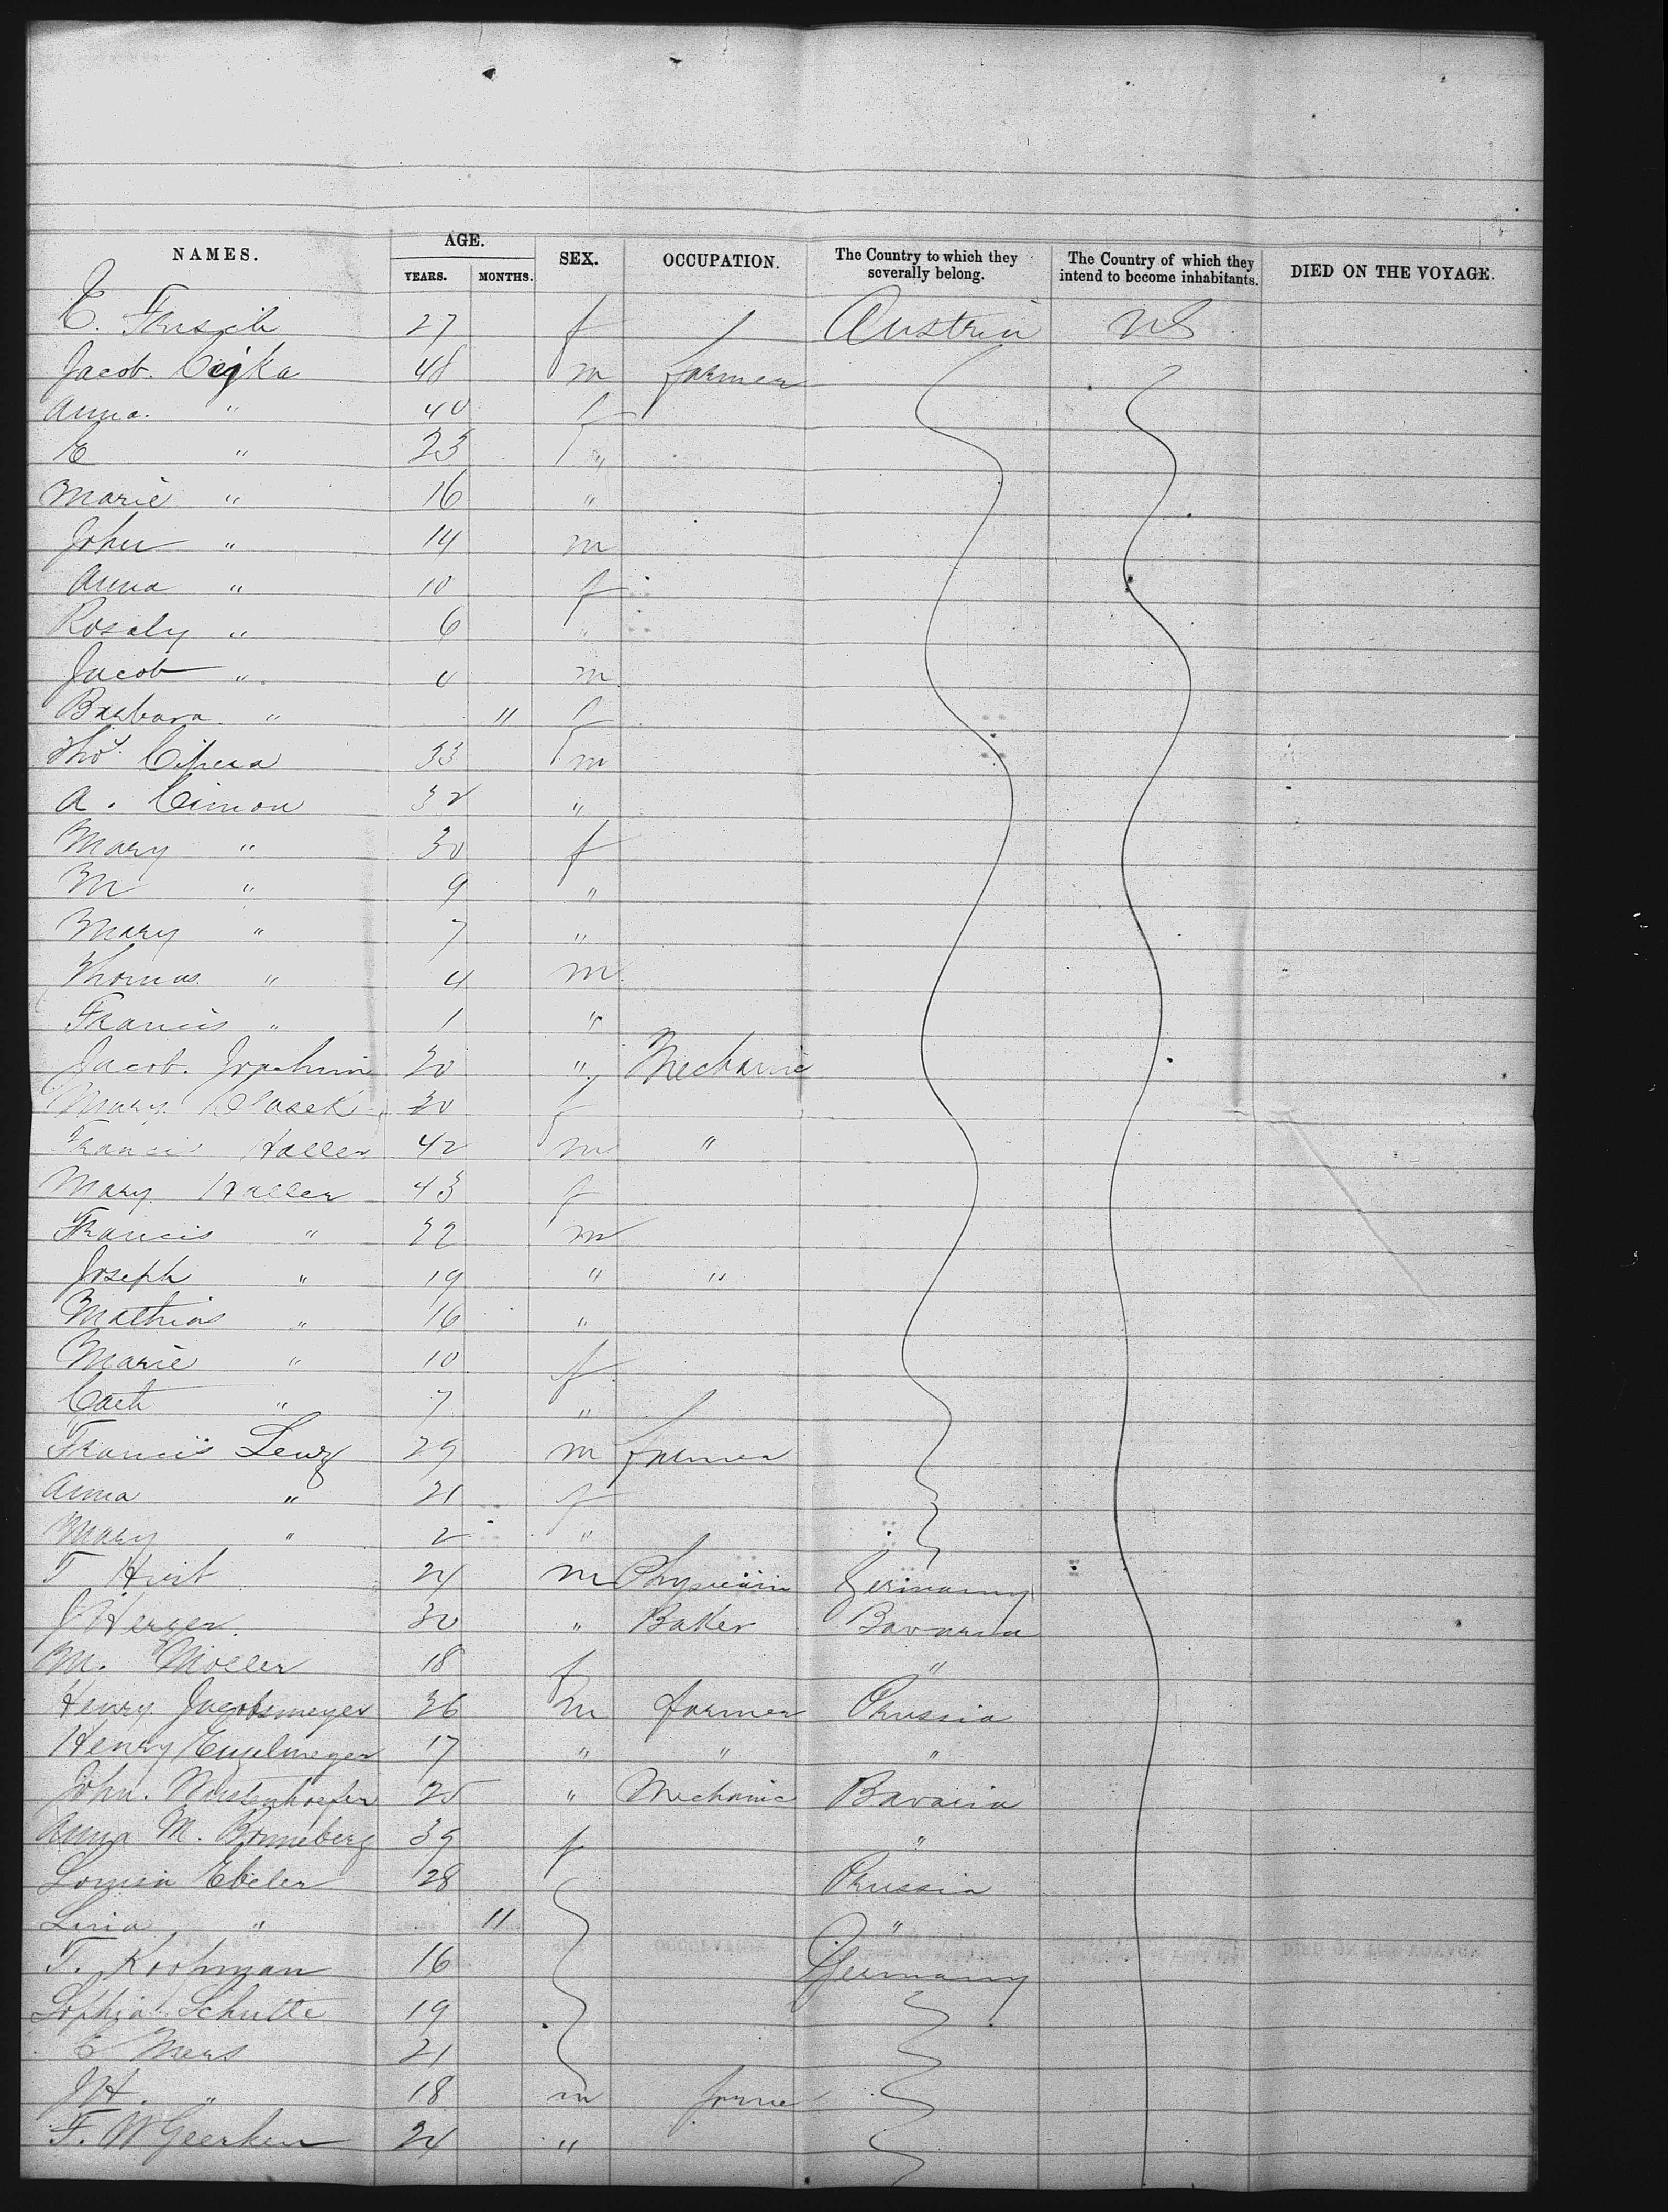 NAMES. AGE. YEARS. MONTHS. SEX. OCCUPATION. The Country to which they severally belong. The Country of which they intend to become inhabitants. DIED ON THE VOYAGE.
27 f / Austria US
Jacob. Cejka 48 m farmer
Anna. " 40 f
E " 23 "
Marie " 16 "
John " 14 m
Anna " 10 f
Rosaly " 6 "
Jacob " m
Barbara " 11 f
33 m
A. Cimon 32 "
Mary " 30 f
M " 9 "
Mary " 7 "
Thomas " 4 m
Francis " 1 "
Jacob. Joachim 20 " Mechanic
Mary 20 f
Francis Haller 42 m "
Mary Haller 43 f
Francis " 22 m
Joseph " 19 " "
Mathias " 16 "
Marie " 10 f
Cath " 7 "
Francis Lenz 29 m farmer
Anna " 21 f
Mary " 2 "
24 m Physician Germany
J Herger 30 " Baker Bavaria
M. Moller 18 f "
Henry Jacobsmeyer 36 m farmer Prussia
Henry Engelmeyer 17 " " "
John. 25 " Mechanic Bavaria
Anna M. Bonneberg 39 f "
Louisa Ebeler 28 Prussia
Lina " 11 "
T. Koopman 16 Germany
Sophia Schutte 19
E Mers 21
J H. " 18 m
F. W Geerken 24 "